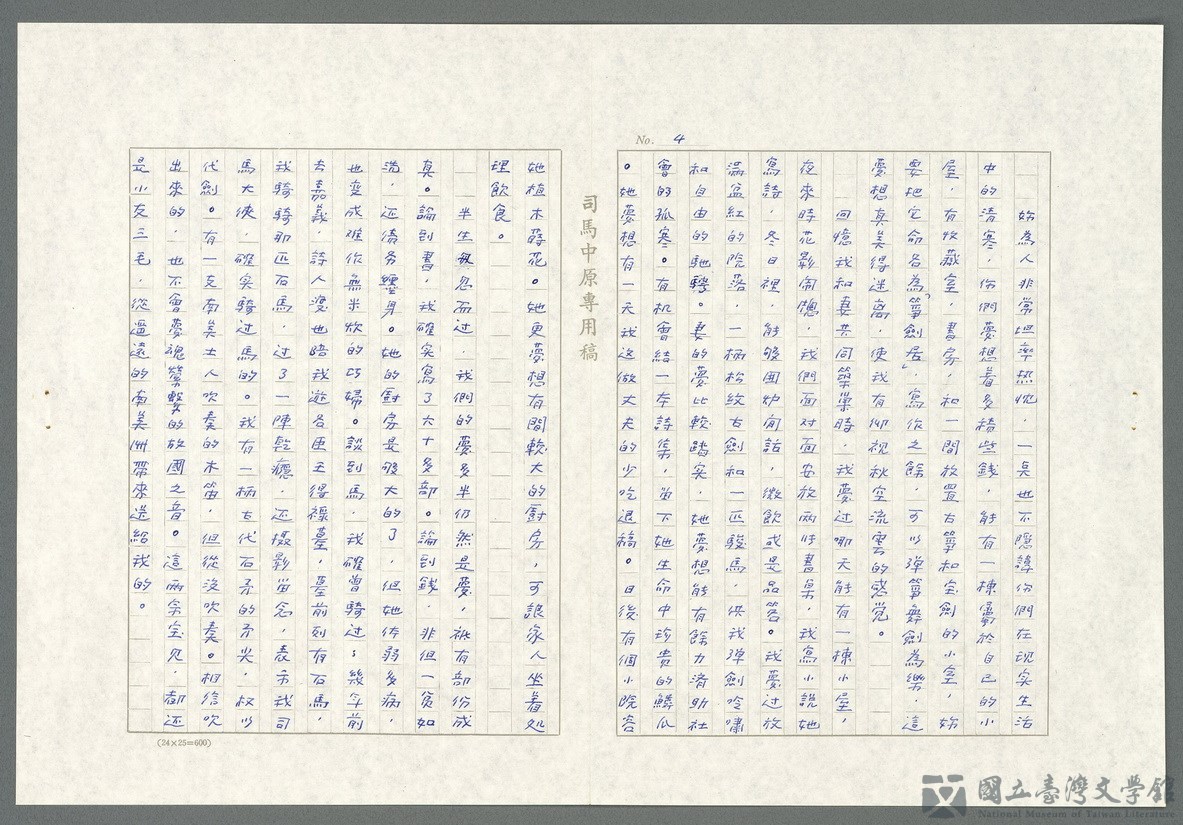 No. 4
妳為人非常坦率熱忱,一點也不隱諱你們在現實生活
中的清寒,你們夢想著多積些錢,能有一棟屬於自己的小
屋,有收藏室,書房,和一間放置古箏和宝劍的小室,妳
要把它命名為「箏劍居」,寫作之餘,可以彈箏舞劍為樂,這
夢想真美得迷離,使我有仰視秋空流雲的感觉。
回憶我和妻共同築巢時,我夢过哪天能有一棟小屋,
夜來時花影鬧牕,我們面对面安放兩張書桌,我寫小說她
寫詩,冬日裡,能够圍炉閒話,微飲或是品茗。我夢过放
滿盆紅的院落,一柄松紋古劍和一匹駿馬,供我彈劍吟嘯
和自由的馳騁。妻的夢比較踏实,她夢想能有餘力濟助社
會的孤寒。有机會結一本詩集,留下她生命中珍贵的鱗爪
。她夢想有一天我这做丈夫的少吃退稿。日後有個小院容
司馬中原專用稿
她植木蒔花。她更夢想有間較大的厨房,可讓家人坐着处
理飲食。
半生忽忽而过,我們的夢多半仍然是夢,祇有部份成
真。論到書,我確实寫了大十多部。論到錢,非但一貧如
洗,还債务纏身。她的厨房是够大的了,但她体弱多病,
也变成难作無米炊的巧婦。談到馬,我確曾騎过;幾年前
去嘉義,詩人渡也陪我遊各逕王得祿墓,墓前刻有石馬,
我騎騎那匹石馬,过了一陣乾癮,还摄影留念,表示我司
馬大俠,確实騎过馬的。我有一柄古代石矛的矛尖,权以
代劍。有一支南美土人吹奏的木笛,但從没吹奏。相信吹
出來的,也不會夢魂縈繫的故國之音。這兩余宝見,都还
是小友三毛,從遥遠的南美洲帶來送給我的。
(24×25=600)
國立臺灣文學館
National Museum of Taiwan Literature